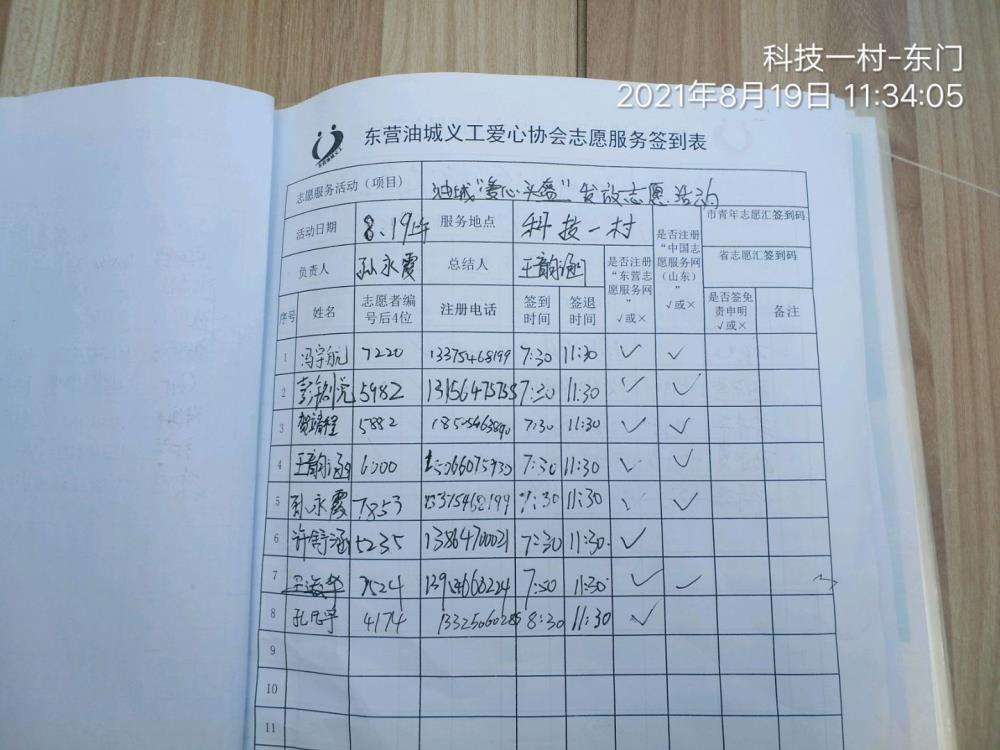 科技一村-东门
2021年8月19日 11:34:05
东营油城义工爱心协会志愿服务签到表
志愿服务活动（项目） 油城"爱心头盔"发放志愿活动
活动日期 8.19 服务地点 科技一村 是否注册"中国志愿服务网（山东） √或× 市青年志愿汇签到码
负责人 孙永霞 总结人 王韵涵 是否注册"东营志愿服务网" √或× 省志愿汇签到码
序号 姓名 志愿者编号后4位 注册电话 签到时间 签退时间 是否签免责申明 √或× 备注
1 冯宇航 7220 13375468199 7:30 11:30 √ √
2 5982 7:30 11:30 √ √
3 贺靖程 5882 7:30 11:30 √ √
4 王韵涵 6000 7:30 11:30 √ √
5 孙永霞 7853 11:30 √ √
6 许舒涵 5235 13864700021 7:30 11:30 √
7 7524 11:30 √ √
8 4174 13325060285 8:30 11:30 √
9
10
11